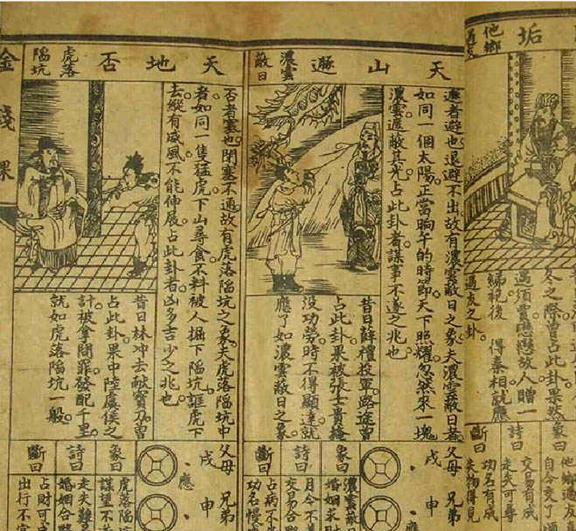 垢
他鄉
遇友
久之際曾占此卦果然
遇須賈恋恋故人贈一
綈袍後 得秦相就應
遇友之卦
象曰
詩曰
斷曰
他鄉遇友
交易有成
走失可尋
功名有成
失物得見
天山遯
濃雲
蔽日
遯者避也退避不出故有濃雲蔽日之象夫濃雲蔽日者
如同一個太陽正當晌午的時節天下照耀忽然來一塊
濃雲遮蔽其光占此卦者謀事不遂之兆也
昔日薛禮投軍路途曾
占此卦果被張士貴掩
沒功勞時不得顯達就
應了如濃雲蔽日之象
父母 兄弟
戌 申
應
象曰
詩曰
斷曰
濃雲蔽日
婚姻
月令不
交易合
占病不
功名
天地否
虎落
陷坑
否者塞也閉塞不通故有虎落陷坑之象夫虎落陷坑中
者如同一隻猛虎下山尋食不料被人掘下陷坑誆虎下
去縱有威風不能伸展占此卦者凶多吉少之兆也
昔日林冲去献寶刀曾
占此卦果中陸虞侯之
計被拿問罪發配千里
就如虎落陷坑一般
父母 兄弟
戌 申
應
象曰
詩曰
斷曰
虎落陷
謀望不
走失難
婚姻合
占財可
出行不
金錢課